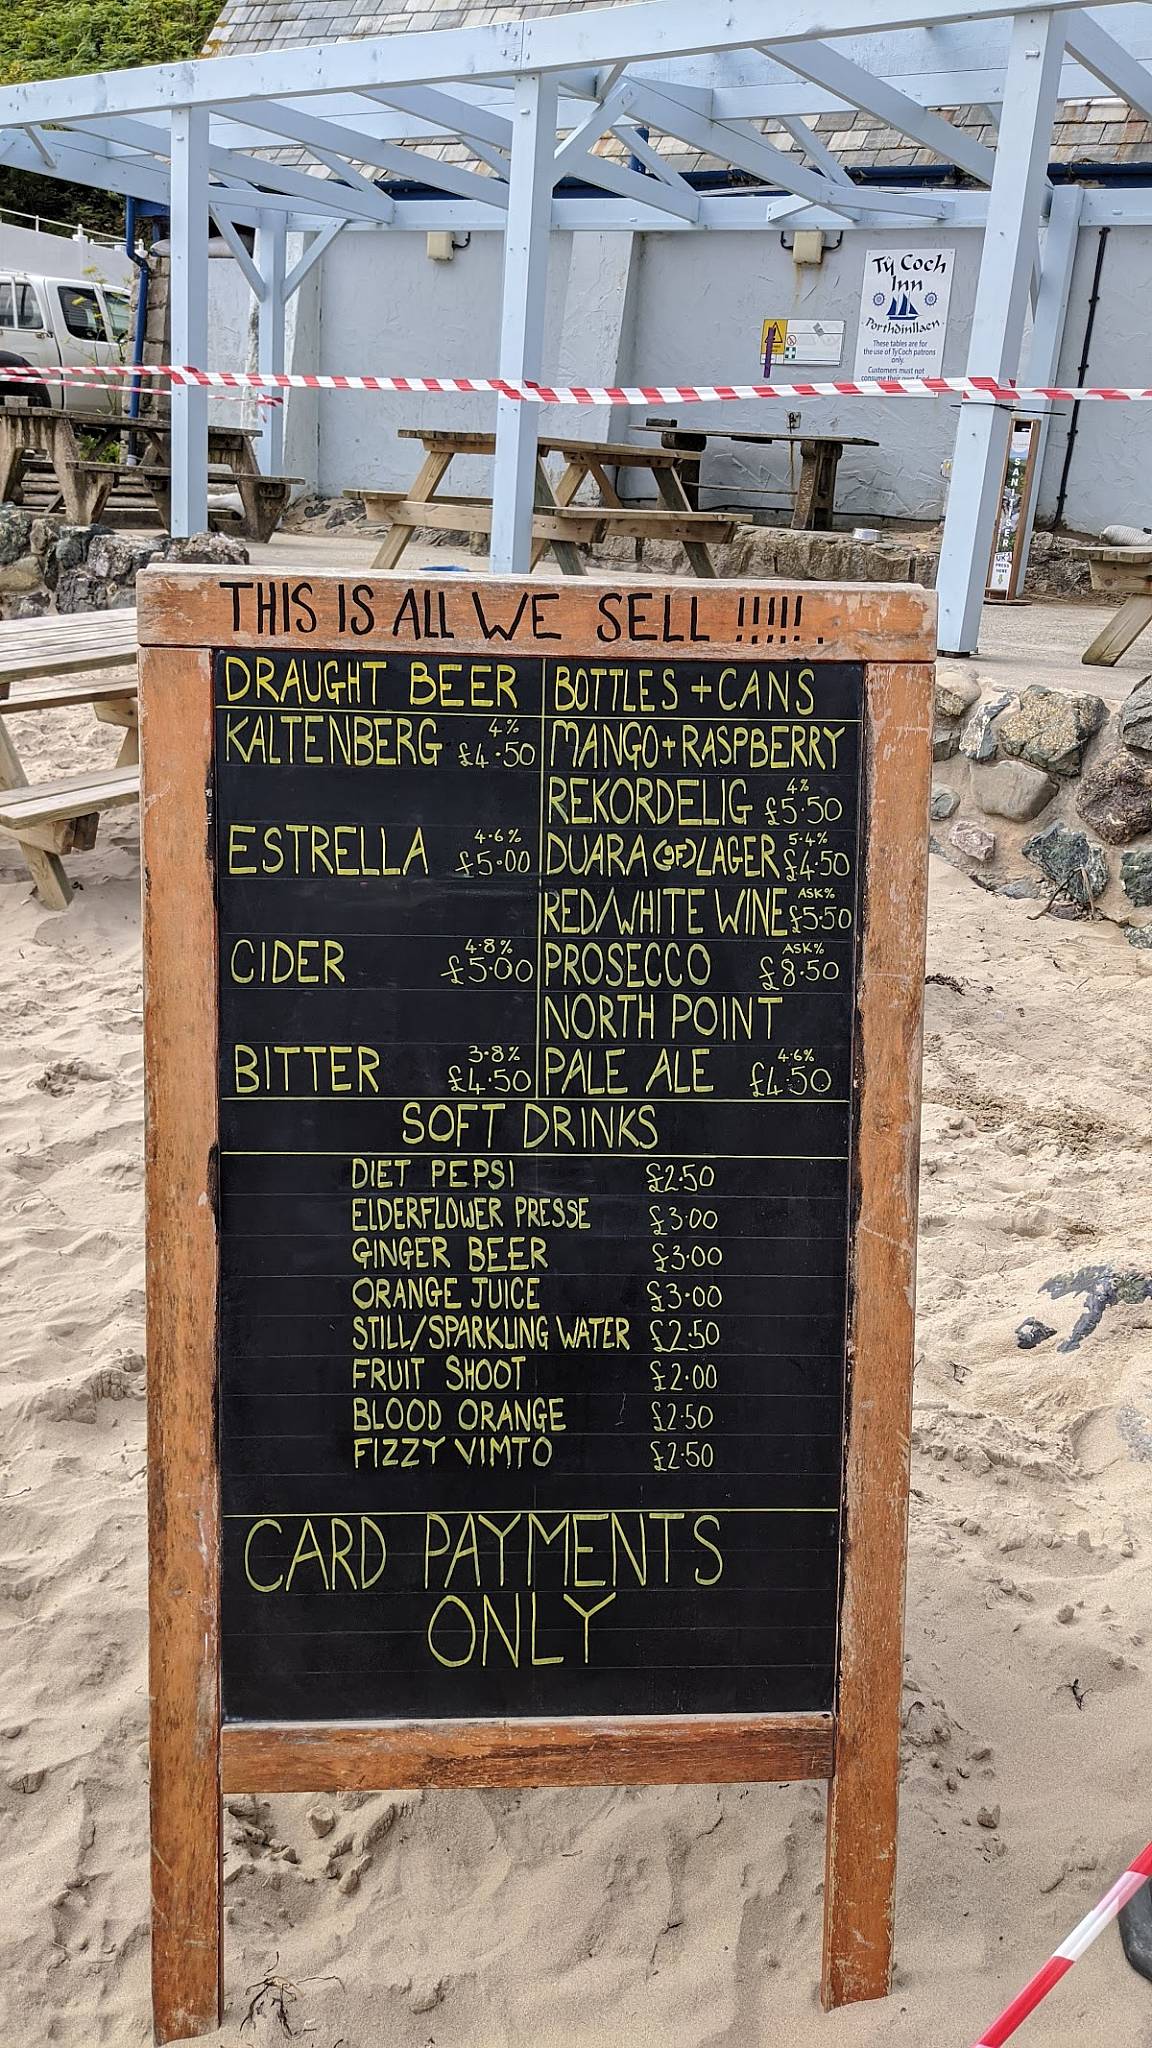 Ty Coch
Inn
Porthdinllaen
These tables are for
the use of TyCoch patrons
only.
Customers must not
SANITISER
PRESS
HERE
THIS IS ALL WE SELL !!!!!.
DRAUGHT BEER
KALTENBERG 4% £4.50
ESTRELLA 4.6% £5.00
CIDER 4.8% £5.00
BITTER 3.8% £4.50
BOTTLES + CANS
MANGO + RASPBERRY
REKORDELIG 4% £5.50
DUARA (gF) LAGER 5.4% £4.50
RED/WHITE WINE ASK% £5.50
PROSECCO ASK% £8.50
NORTH POINT
PALE ALE 4.6% £4.50
SOFT DRINKS
DIET PEPSI £2.50
ELDERFLOWER PRESSE £3.00
GINGER BEER £3.00
ORANGE JUICE £3.00
STILL/SPARKLING WATER £2.50
FRUIT SHOOT £2.00
BLOOD ORANGE £2.50
FIZZY VIMTO £2.50
CARD PAYMENTS
ONLY